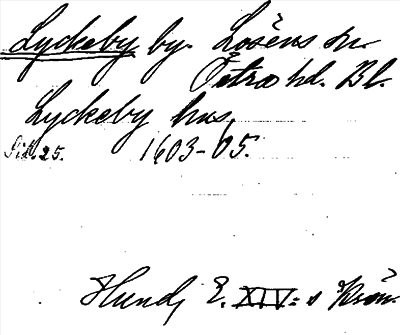 Lyckeby by. Lösens sn.
Östra hd. Bl.
Lyckeby hus.
1603-05.
Hund, E. XIV:s Krön.